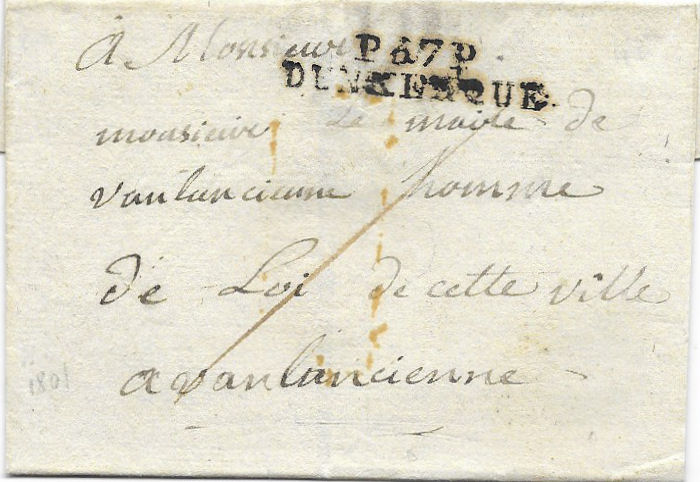 A Monsieur
P.67.P.
DUNKERQUE
monsieur Le maire de
vanlancienne homme
de Loi de cette ville
a vanlancienne
1801